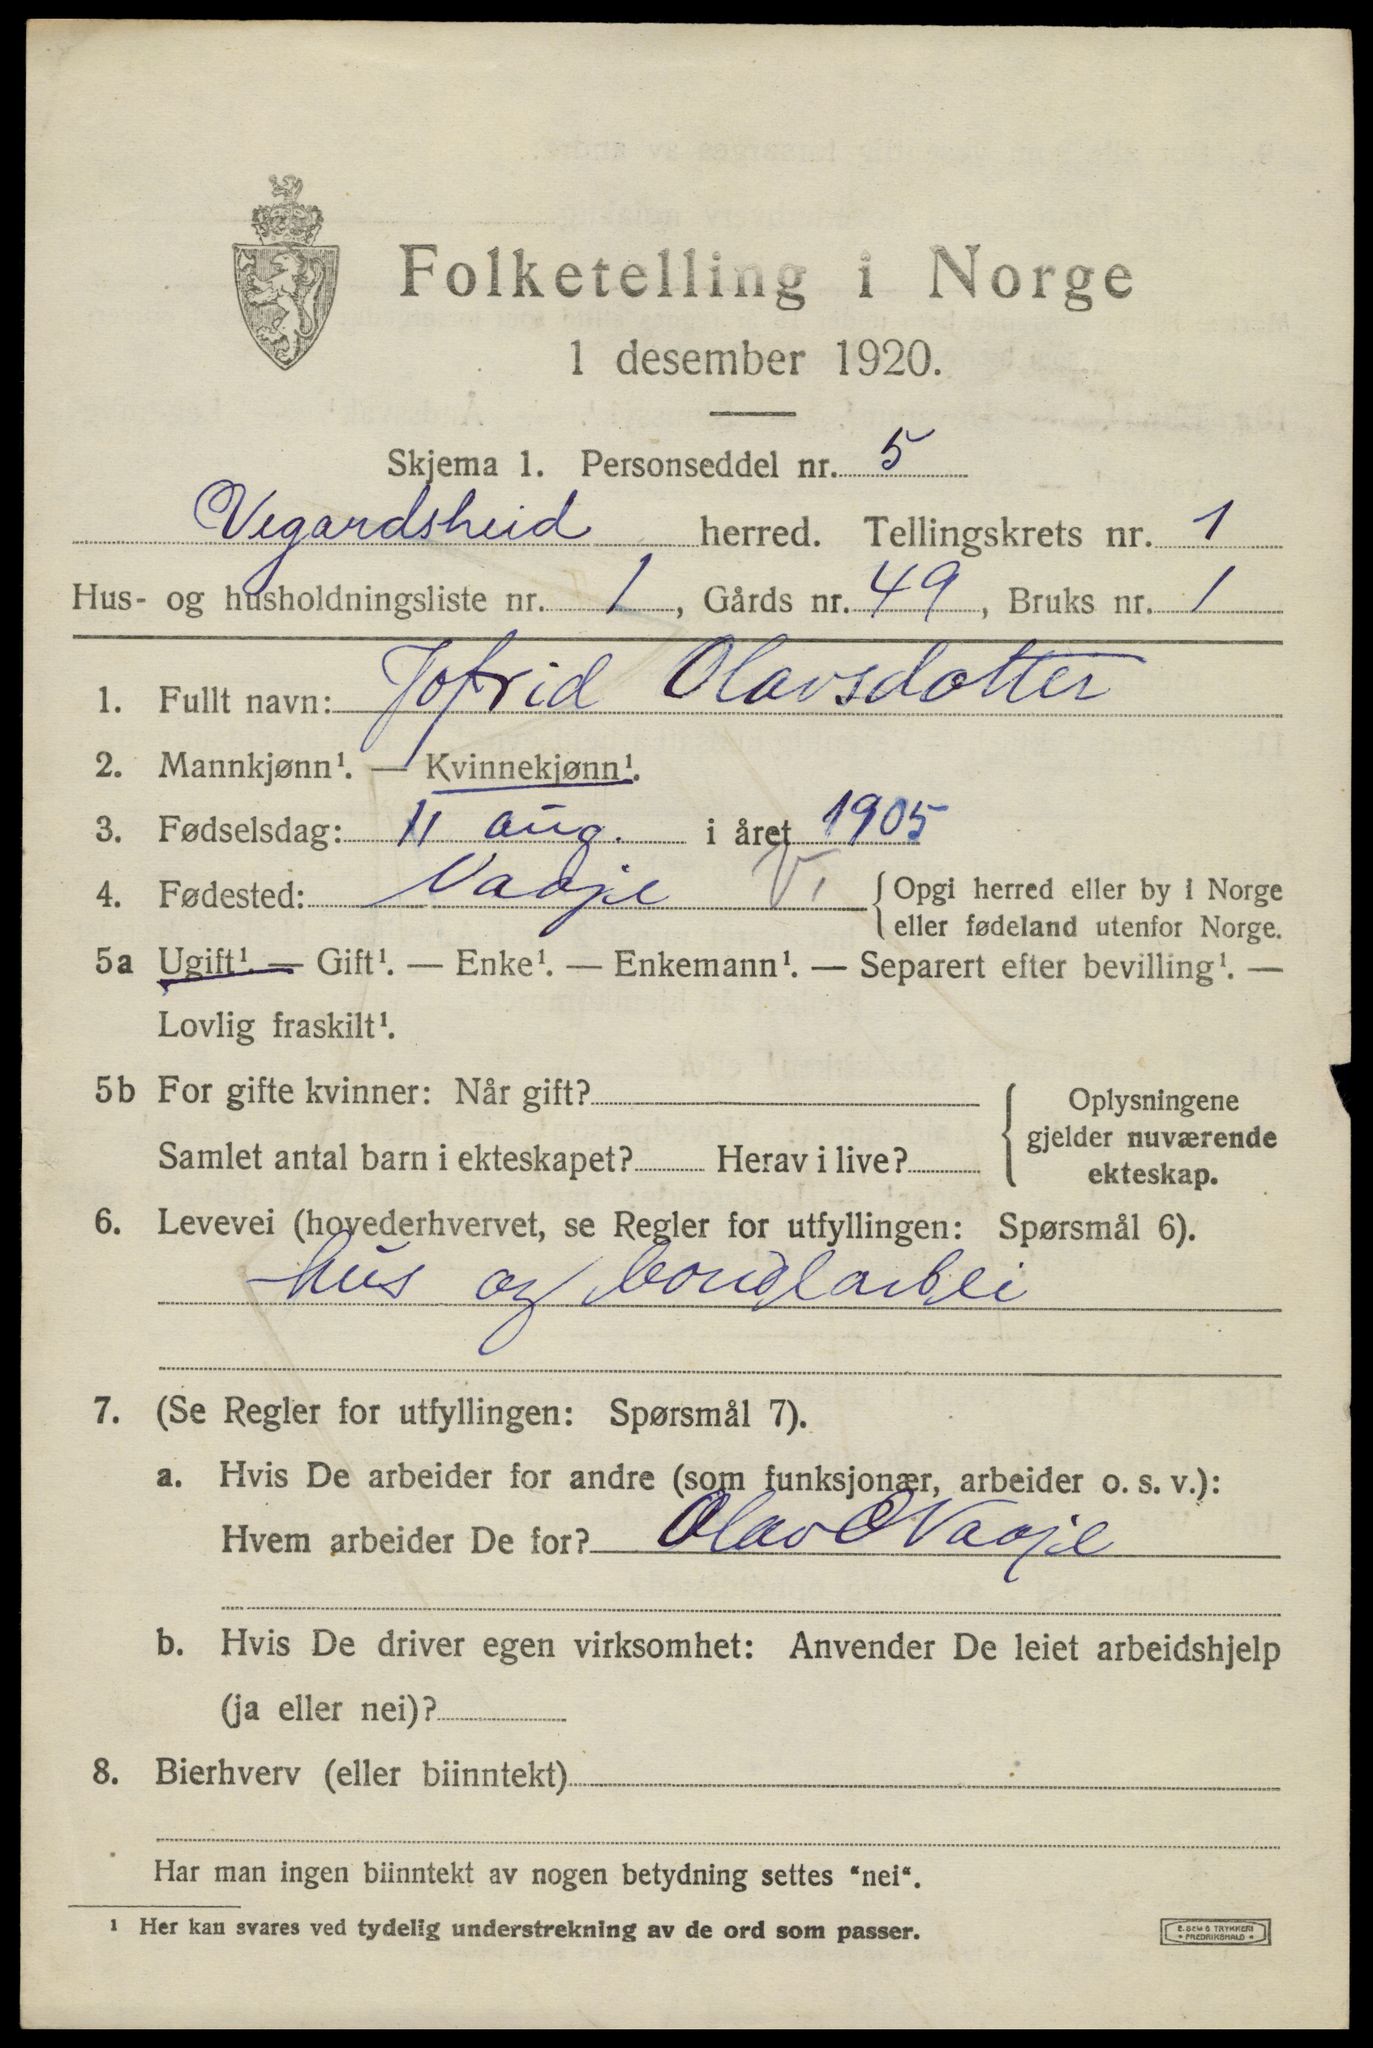 Folketelling i Norge
1 desember 1920.
Skjema 1. Personseddel nr. 5
Vegardsheid herred. Tellingskrets nr. 1
Hus- og husholdningsliste nr. 1, Gårds nr. 49, Bruks nr. 1
1. Fullt navn: Jofrid Olavsdotter
2. Mannkjønn¹. — Kvinnekjønn¹.
3. Fødselsdag: 11 aug. i året 1905
4. Fødested: Vaaje V. {Opgi herred eller by i Norge
eller fødeland utenfor Norge.
5a Ugift¹. — Gift¹. — Enke¹. — Enkemann¹. — Separert efter bevilling¹. —
Lovlig fraskilt¹.
5b For gifte kvinner: Når gift?
Samlet antal barn i ekteskapet? Herav i live?
Oplysningene
gjelder nuværende
ekteskap.
6. Levevei (hovederhvervet, se Regler for utfyllingen: Spørsmål 6).
hus og bondearbei
7. (Se Regler for utfyllingen: Spørsmål 7).
a. Hvis De arbeider for andre (som funksjonær, arbeider o. s. v.):
Hvem arbeider De for? Olav O Vaaje
b. Hvis De driver egen virksomhet: Anvender De leiet arbeidshjelp
(ja eller nei)?
8. Bierhverv (eller biinntekt)
Har man ingen biinntekt av nogen betydning settes "nei".
¹ Her kan svares ved tydelig understrekning av de ord som passer.
E. SEM S TRYKKERI
FREDRIKSHALD